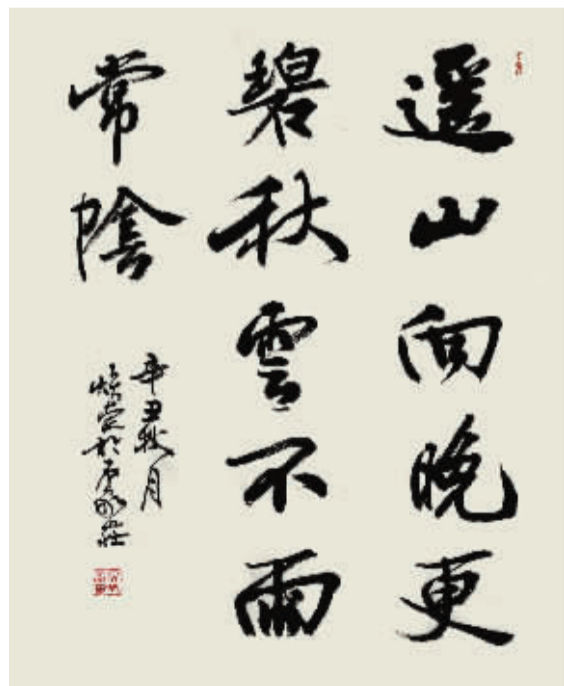 遥山向晚更
碧秋雲不雨
常陰
辛丑秋月
於 莊